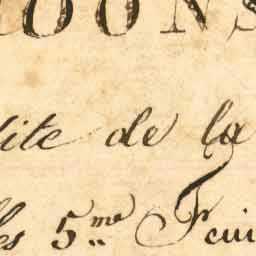 OONS
ite de la
les 5.me Feui